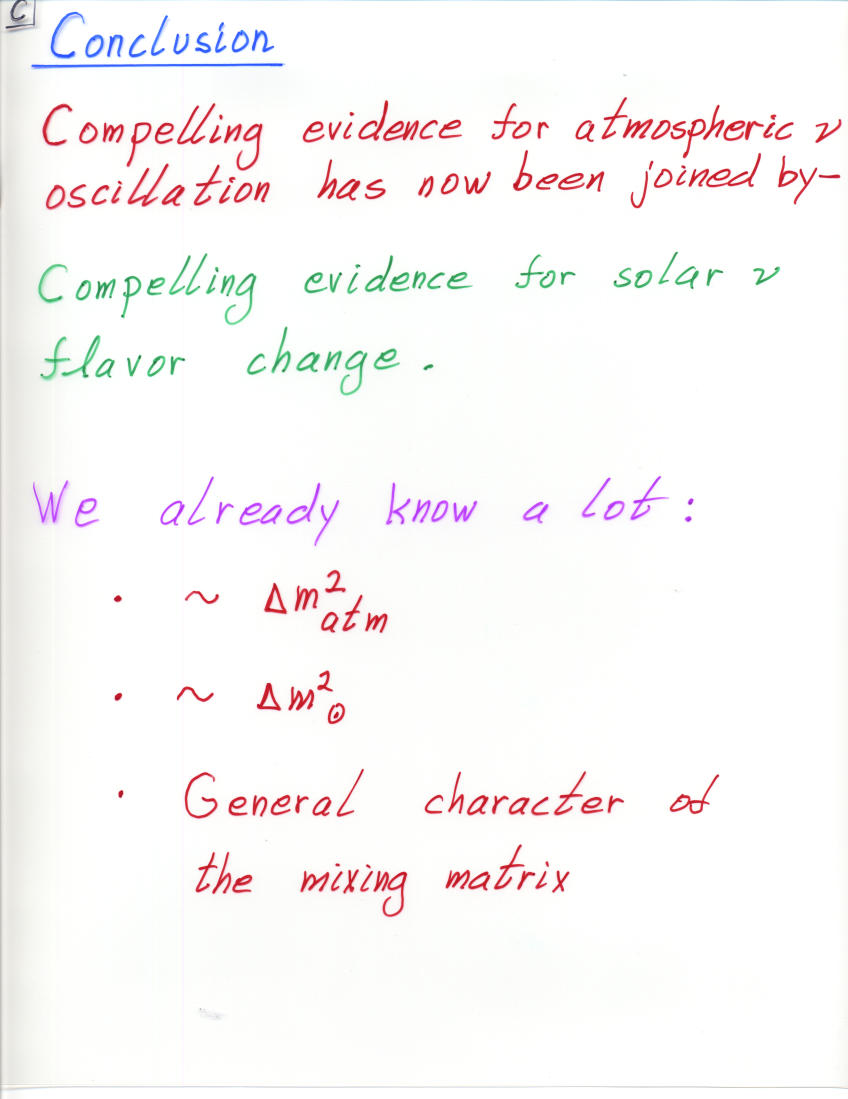 C
Conclusion
Compelling evidence for atmospheric ν
oscillation has now been joined by—
Compelling evidence for solar ν
flavor change.
We already know a lot:
· ~ Δm²atm
· ~ Δm²⊙
· General character of
the mixing matrix